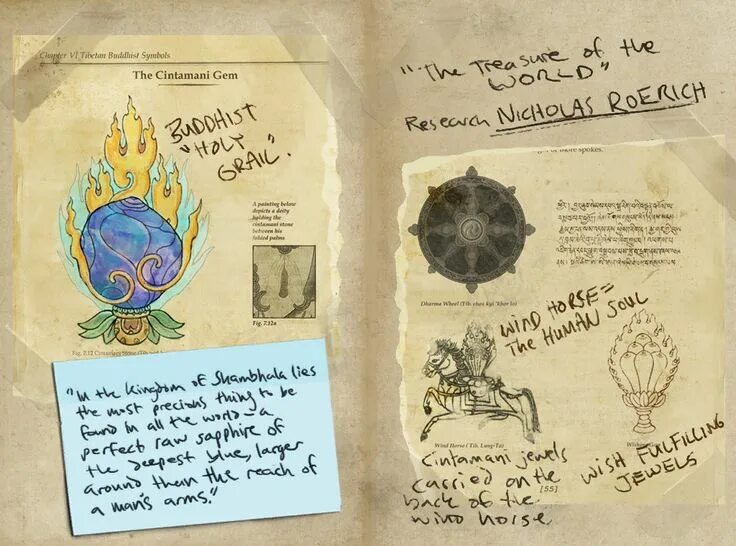 Chapter VI Tibetan Buddhist Symbols
The Cintamani Gem
BUDDHIST
"HOLY
GRAIL".
A painting below
depicts a deity
holding the
cintamani stone
between his
folded palms
Fig. 7.32a
Fig. 7.12 Cintamani Stone
"In the Kingdom of Shambhala lies
the most precious thing to be
found in all the world – a
perfect raw sapphire of
the deepest blue, larger
around than the reach of
a man's arms."
"The Treasure of the
WORLD"
Research NICHOLAS ROERICH
or more spokes.
Dharma Wheel (Tib. chos kyi 'khor lo)
WIND HORSE =
The HUMAN SOUL
Wind Horse (Tib. Lung-Ta)
Cintamani jewels
carried on the
back of the
wind horse
[55]
WISH FULFILLING
JEWELS